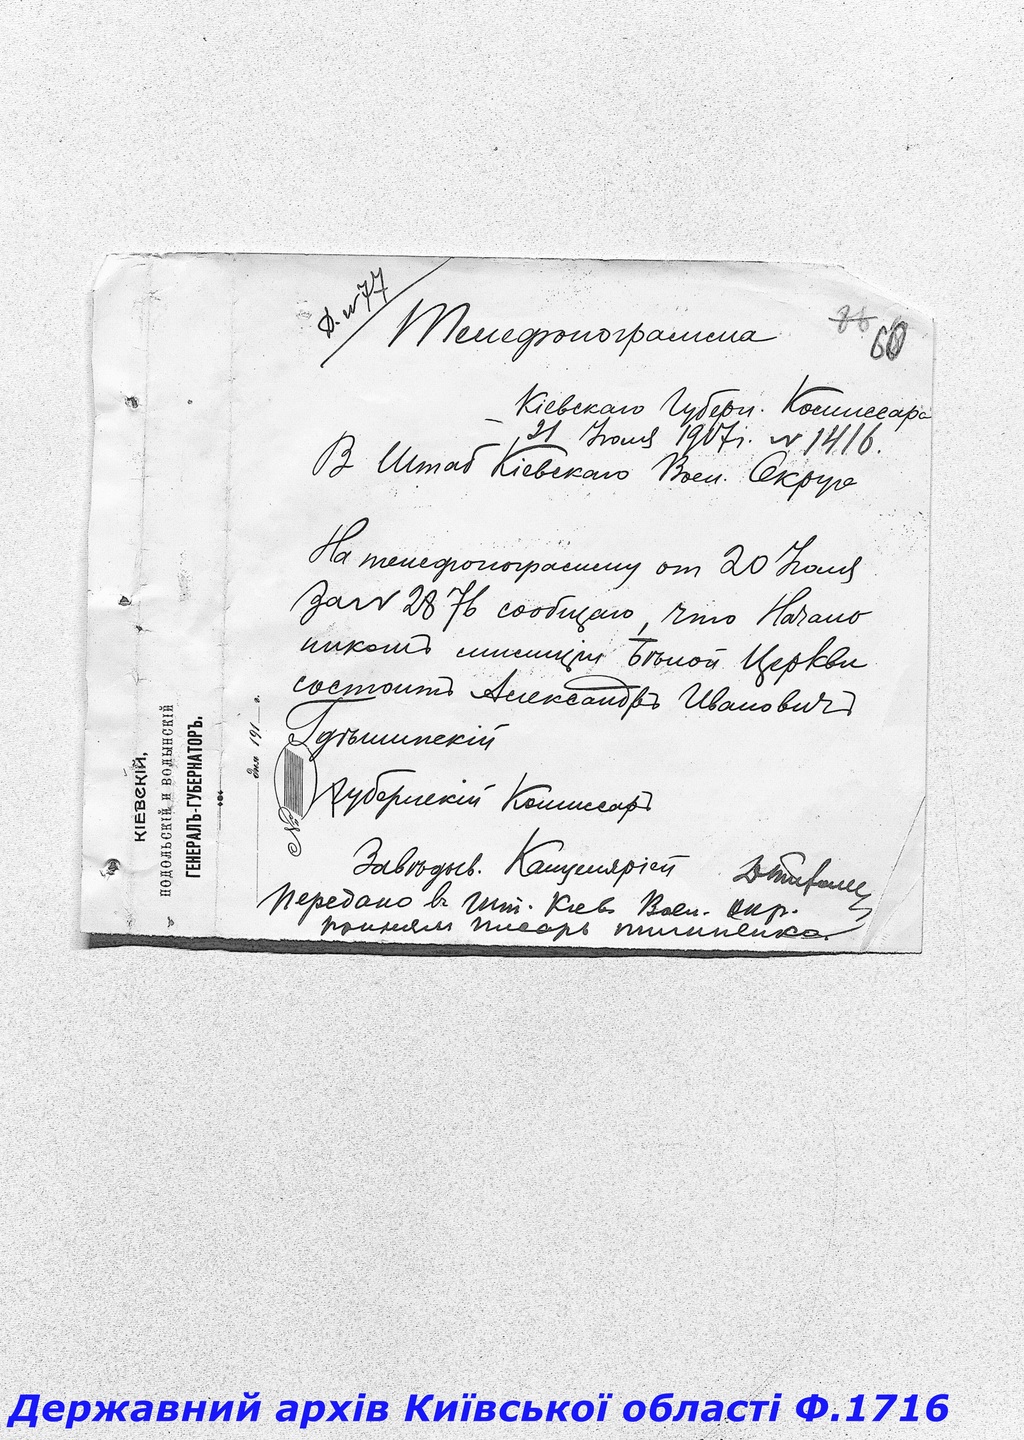 Д. № 77
Телефонограмма
88 60
Кіевскаго Губерн. Комиссара
21 Июля 1917 г. № 1416.
В Штаб Кіевскаго Воен. Округа
На телефонограмму от 20 Июля
За № 2876 сообщаю, что Началь
никомъ милиціи Бѣлой Церкви
состоитъ Александръ Ивановичъ
Губернскій Комиссаръ
Завѣдыв. Канцеляріей
Передано в шт. Кіев Воен. Окр.
принял писарь
КІЕВСКІЙ,
ПОДОЛЬСКІЙ И ВОЛЫНСКІЙ
ГЕНЕРАЛЪ-ГУБЕРНАТОРЪ.
дня 191 г.
№
Державний архів Київської області Ф.1716